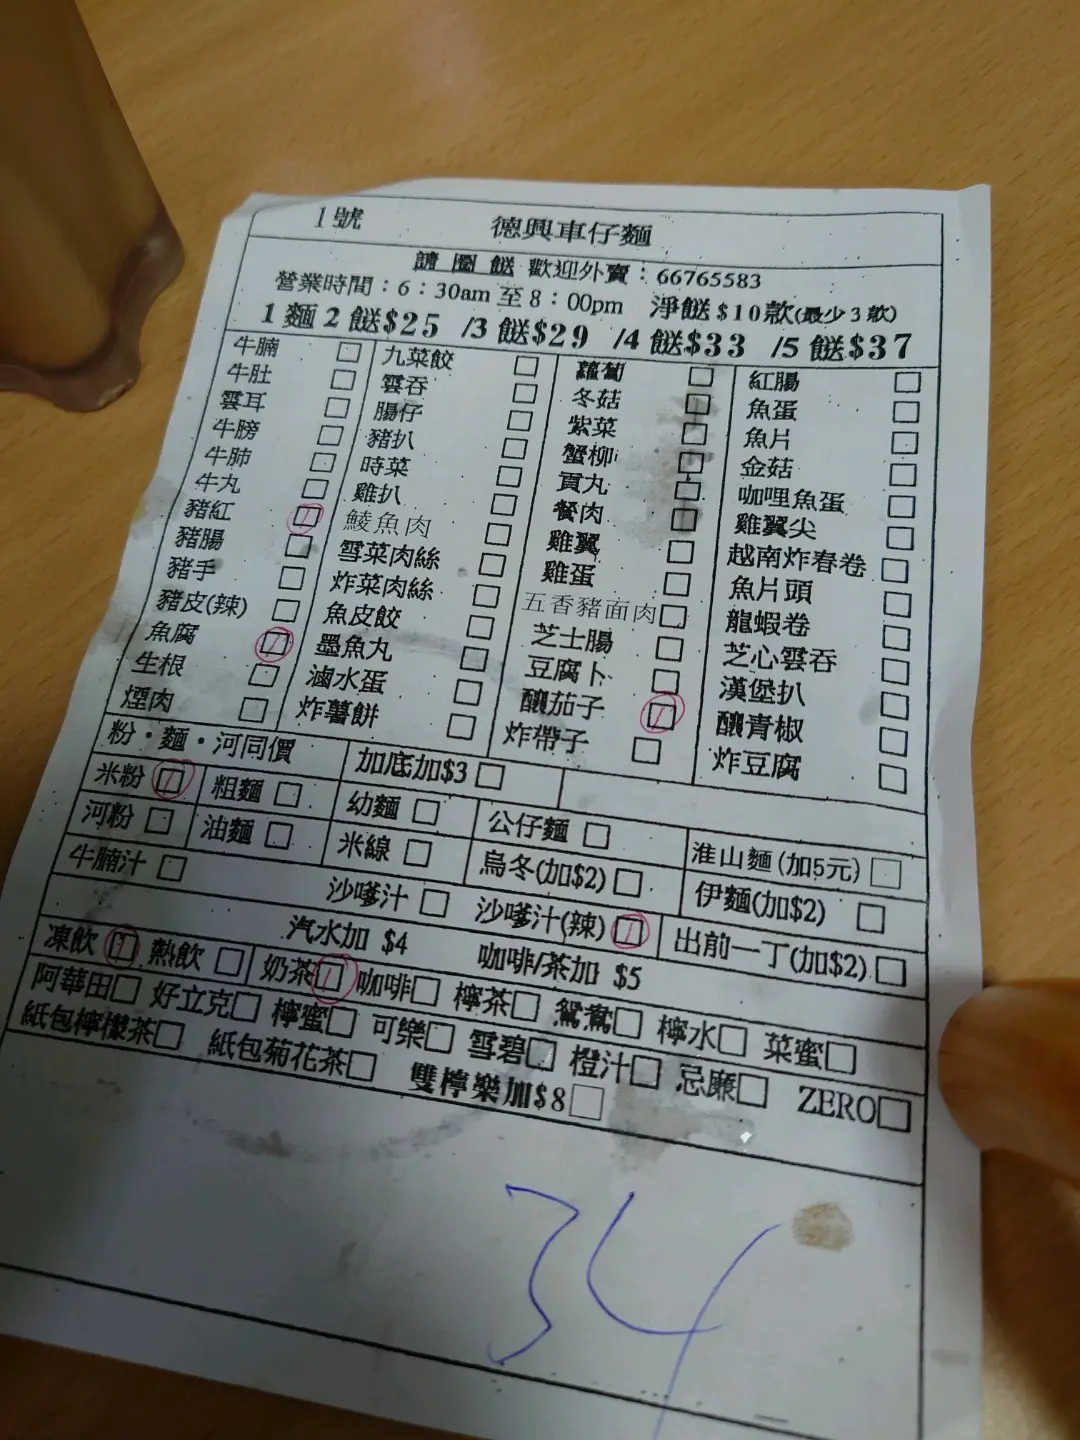 1號 德興車仔麵
請圈餸 歡迎外賣：66765583
營業時間：6：30am 至8：00pm 淨餸$10款(最少3款)
1麵2餸$25 /3餸$29 /4餸$33 /5餸$37
牛腩 □ 九菜餃 □ 蘿蔔 □ 紅腸 □
牛肚 □ 雲吞 □ 冬菇 □ 魚蛋 □
雲耳 □ 腸仔 □ 紫菜 □ 魚片 □
牛膀 □ 豬扒 □ 蟹柳 □ 金菇 □
牛肺 □ 時菜 □ 貢丸 □ 咖哩魚蛋 □
牛丸 □ 雞扒 □ 餐肉 □ 雞翼尖 □
豬紅 □ 1 鯪魚肉 □ 雞翼 □ 越南炸春卷 □
豬腸 □ 雪菜肉絲 □ 雞蛋 □ 魚片頭 □
豬手 □ 炸菜肉絲 □ 五香豬面肉 □ 龍蝦卷 □
豬皮(辣) □ 魚皮餃 □ 芝士腸 □ 芝心雲吞 □
魚腐 □ 1 墨魚丸 □ 豆腐卜 □ 漢堡扒 □
生根 □ 滷水蛋 □ 釀茄子 □ 1 釀青椒 □
煙肉 □ 炸薯餅 □ 炸帶子 □ 炸豆腐 □
粉・麵・河同價 加底加$3 □
米粉 □ 1 粗麵 □ 幼麵 □ 公仔麵 □ 淮山麵(加5元) □
河粉 □ 油麵 □ 米線 □ 烏冬(加$2) □ 伊麵(加$2) □
牛腩汁 □ 沙嗲汁 □ 沙嗲汁(辣) □ 1 出前一丁(加$2) □
汽水加 $4 咖啡/茶加 $5
凍飲 □ 1 熱飲 □ 奶茶 □ 1 咖啡 □ 檸茶 □ 鴛鴦 □ 檸水 □ 菜蜜 □
阿華田 □ 好立克 □ 檸蜜 □ 可樂 □ 雪碧 □ 橙汁 □ 忌廉 □ ZERO □
紙包檸檬茶 □ 紙包菊花茶 □ 雙檸樂加$8 □
34